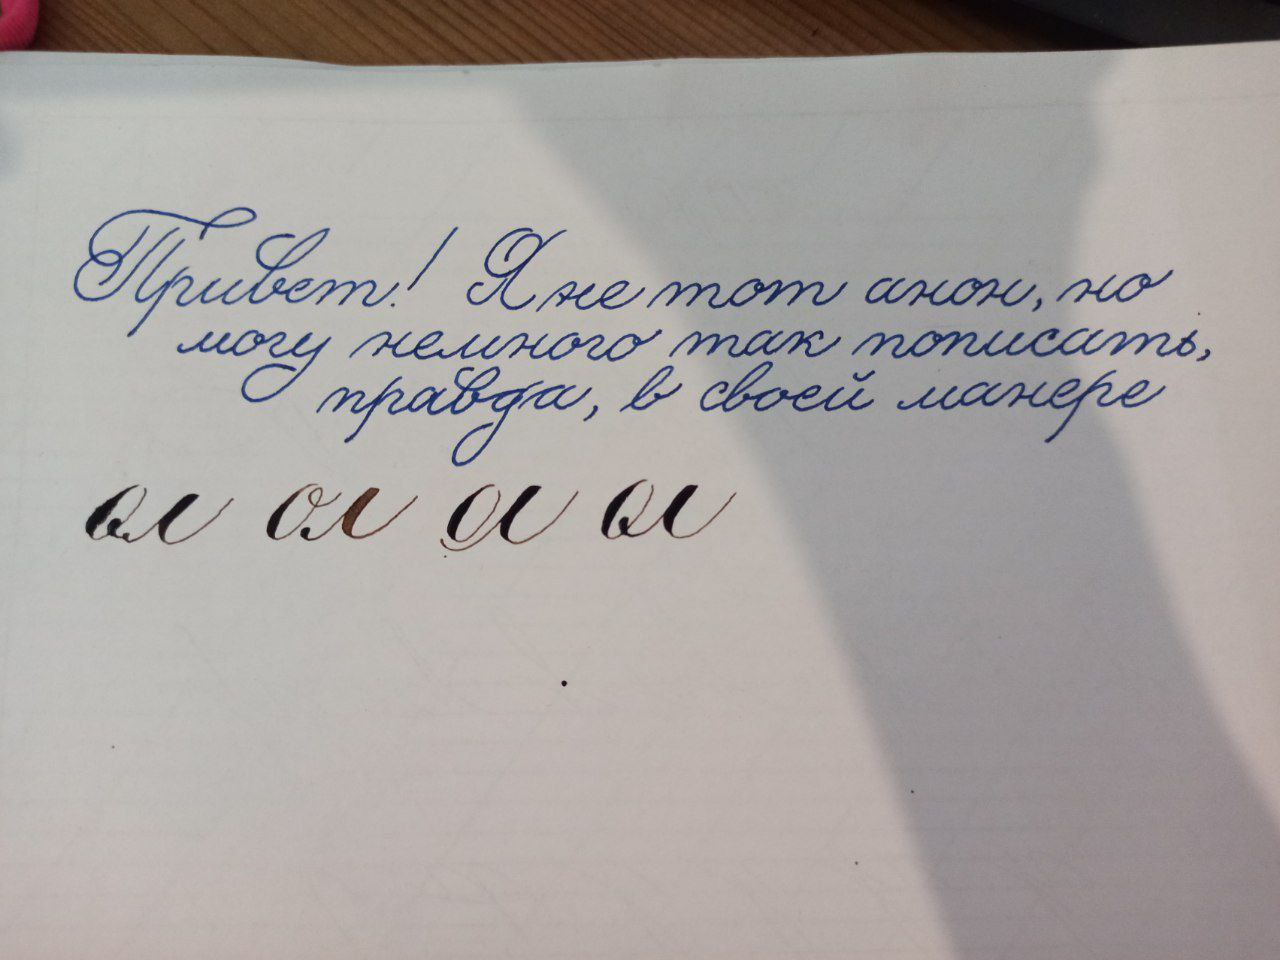 Привет! Я не тот анон, но
могу немного так пописать,
правда, в своей манере
а а а а